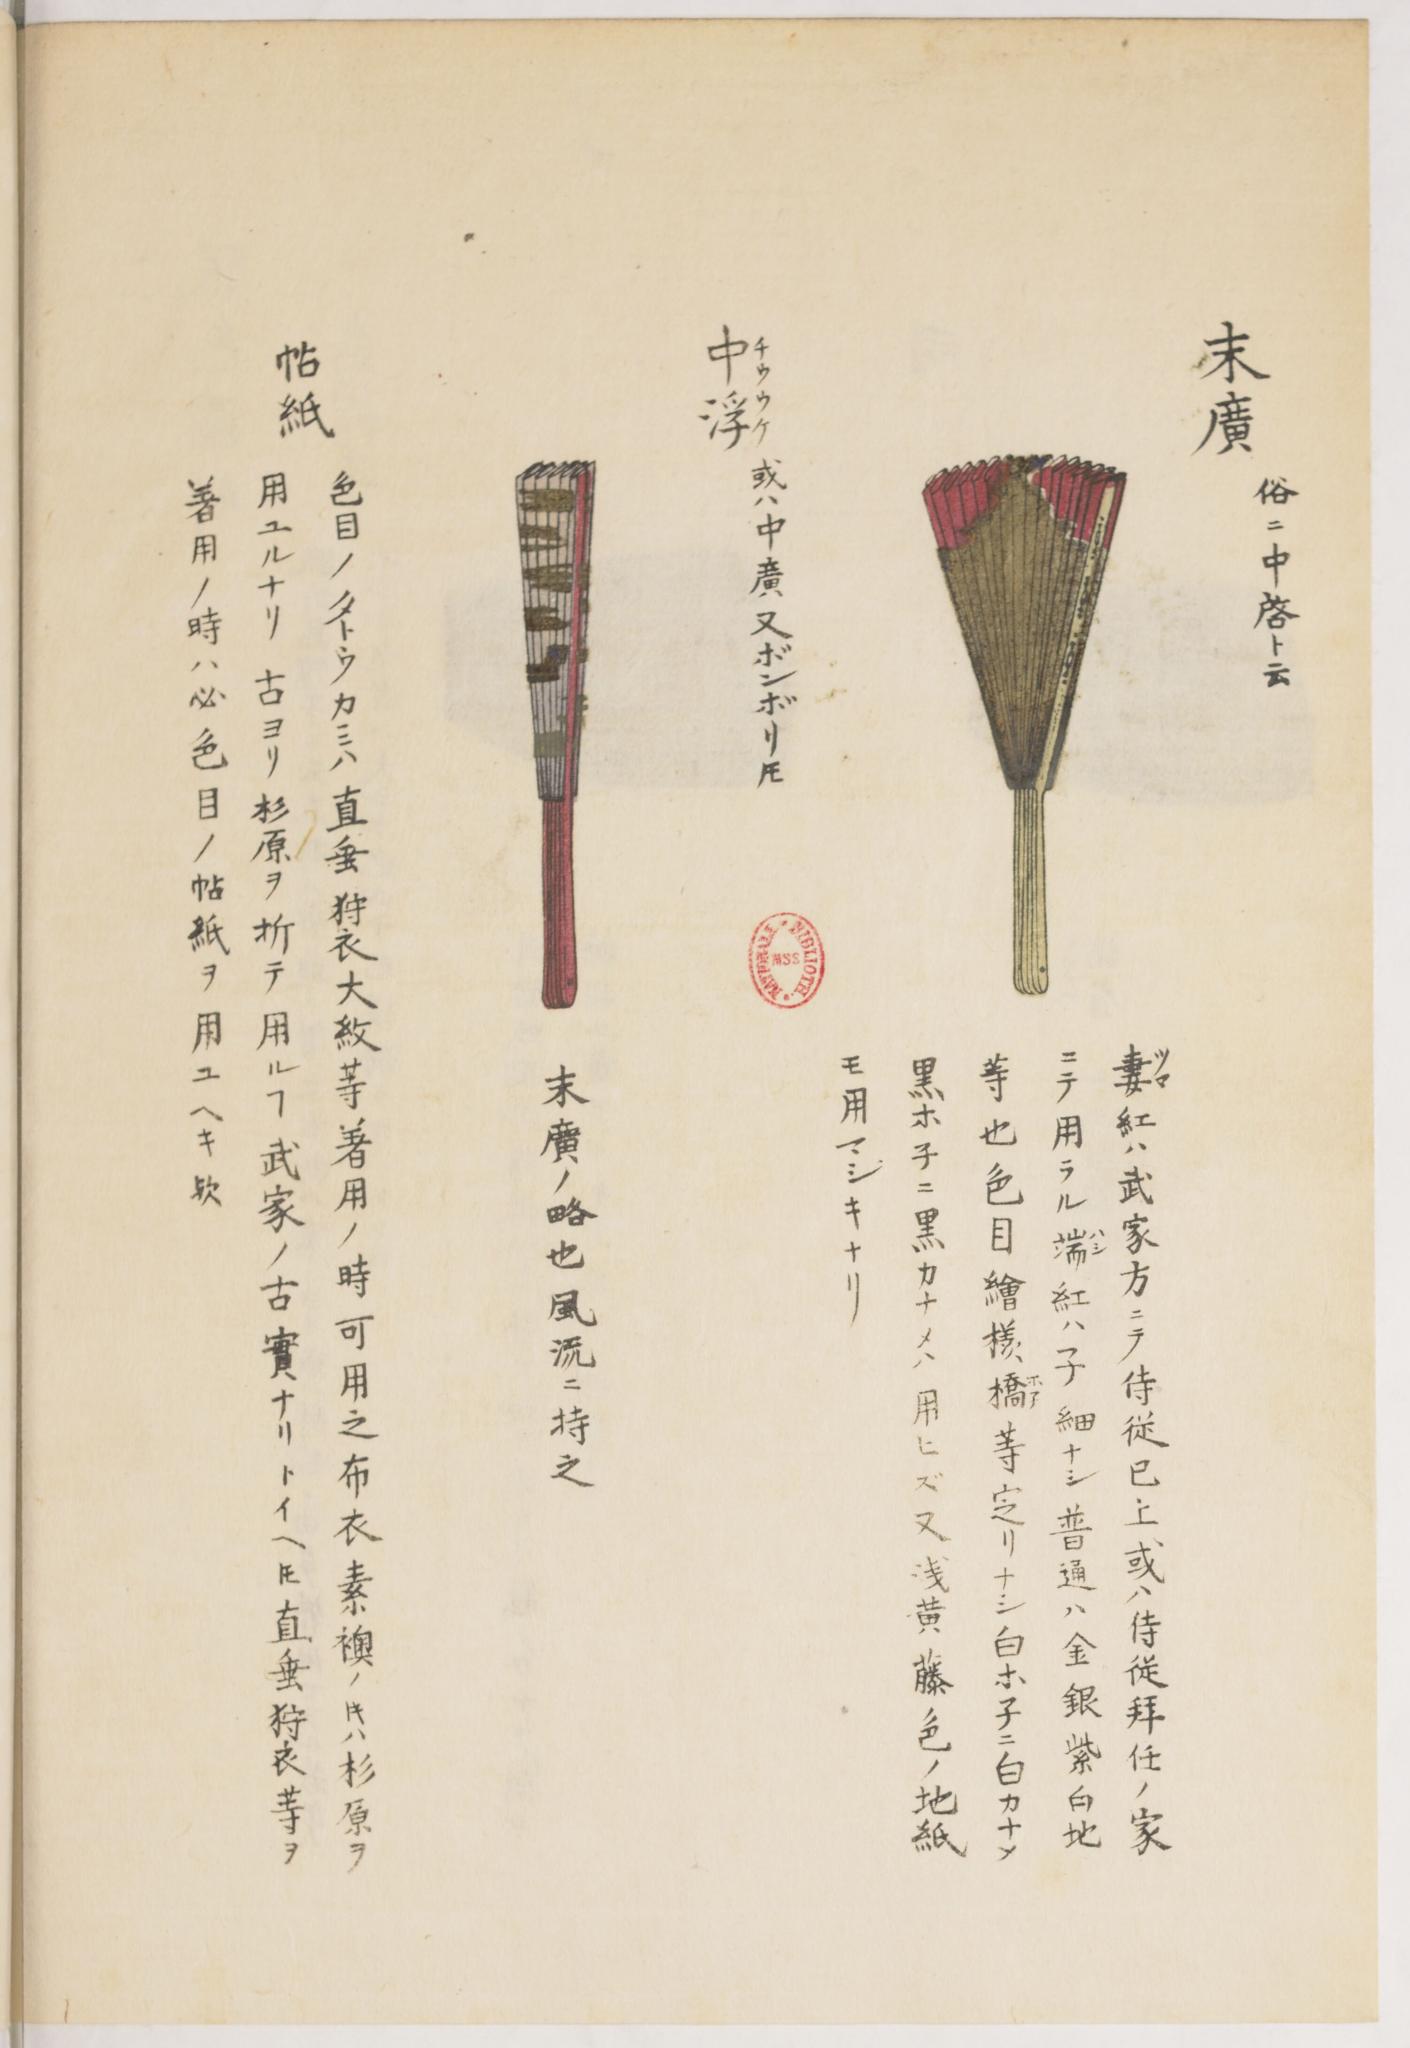 末廣
俗ニ中啓ト云
妻紅ハ武家方ニテ侍従已上或ハ侍従拜任ノ家
ツマ
ニテ用ラル端紅ハ子細ナシ普通ハ金銀紫白地
ハシ
等也色目繪様橋等定リナシ白ホ子ニ白カナメ
ホ子
黒ホ子ニ黒カナメハ用ヒズ又浅黄藤ノ色ノ地紙
モ用マジキナリ
中浮
チウウケ
或ハ中廣又ボンボリ𪜈
末廣ノ略也風流ニ持之
帖紙
色目ノタトウカミハ直垂狩衣大紋等着用ノ時可用之布衣素襖ノ𪜈ハ杉原ヲ
用ユルナリ古ヨリ杉原ヲ折テ用ルヿ武家ノ古實ナリトイヘ𪜈直垂狩衣等ヲ
着用ノ時ハ必色目ノ帖紙ヲ用ユヘキ欤
BIBLIOTH. NATIONALE
MSS